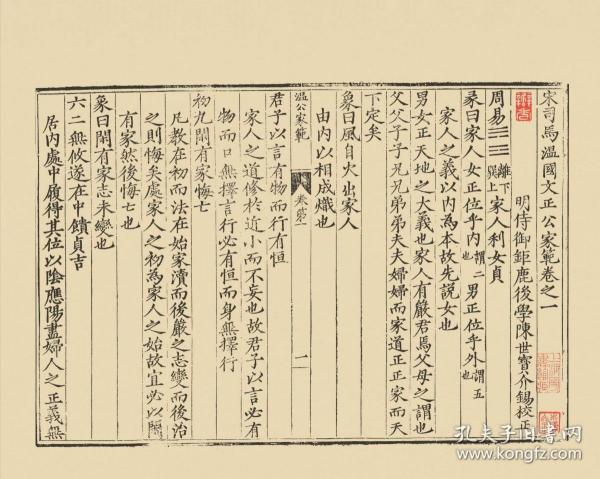 宋司馬溫國文正公家範卷之一
明侍御鉅鹿後學陳世寶介錫校正
周易☲☴離下巽上家人利女貞
彖曰家人女正位乎內謂二也男正位乎外謂五也
家人之義以內為本故先説女也
男女正天地之大義也家人有嚴君焉父母之謂也
父父子子兄兄弟弟夫夫婦婦而家道正正家而天
下定矣
象曰風自火出家人
由內以相成熾也
溫公家範
卷第一
一
君子以言有物而行有恒
家人之道修於近小而不妄也故君子以言必有
物而口無擇言行必有恒而身無擇行
初九閑有家悔亡
凡教在初而法在始家瀆而後嚴之志變而後治
之則悔矣處家人之初為家人之始故宜必以閑
有家然後悔亡也
象曰閑有家志未變也
六二無攸遂在中饋貞吉
居內處中履得其位以陰應陽盡婦人之正義無
孔夫子旧书网
www.kongfz.com